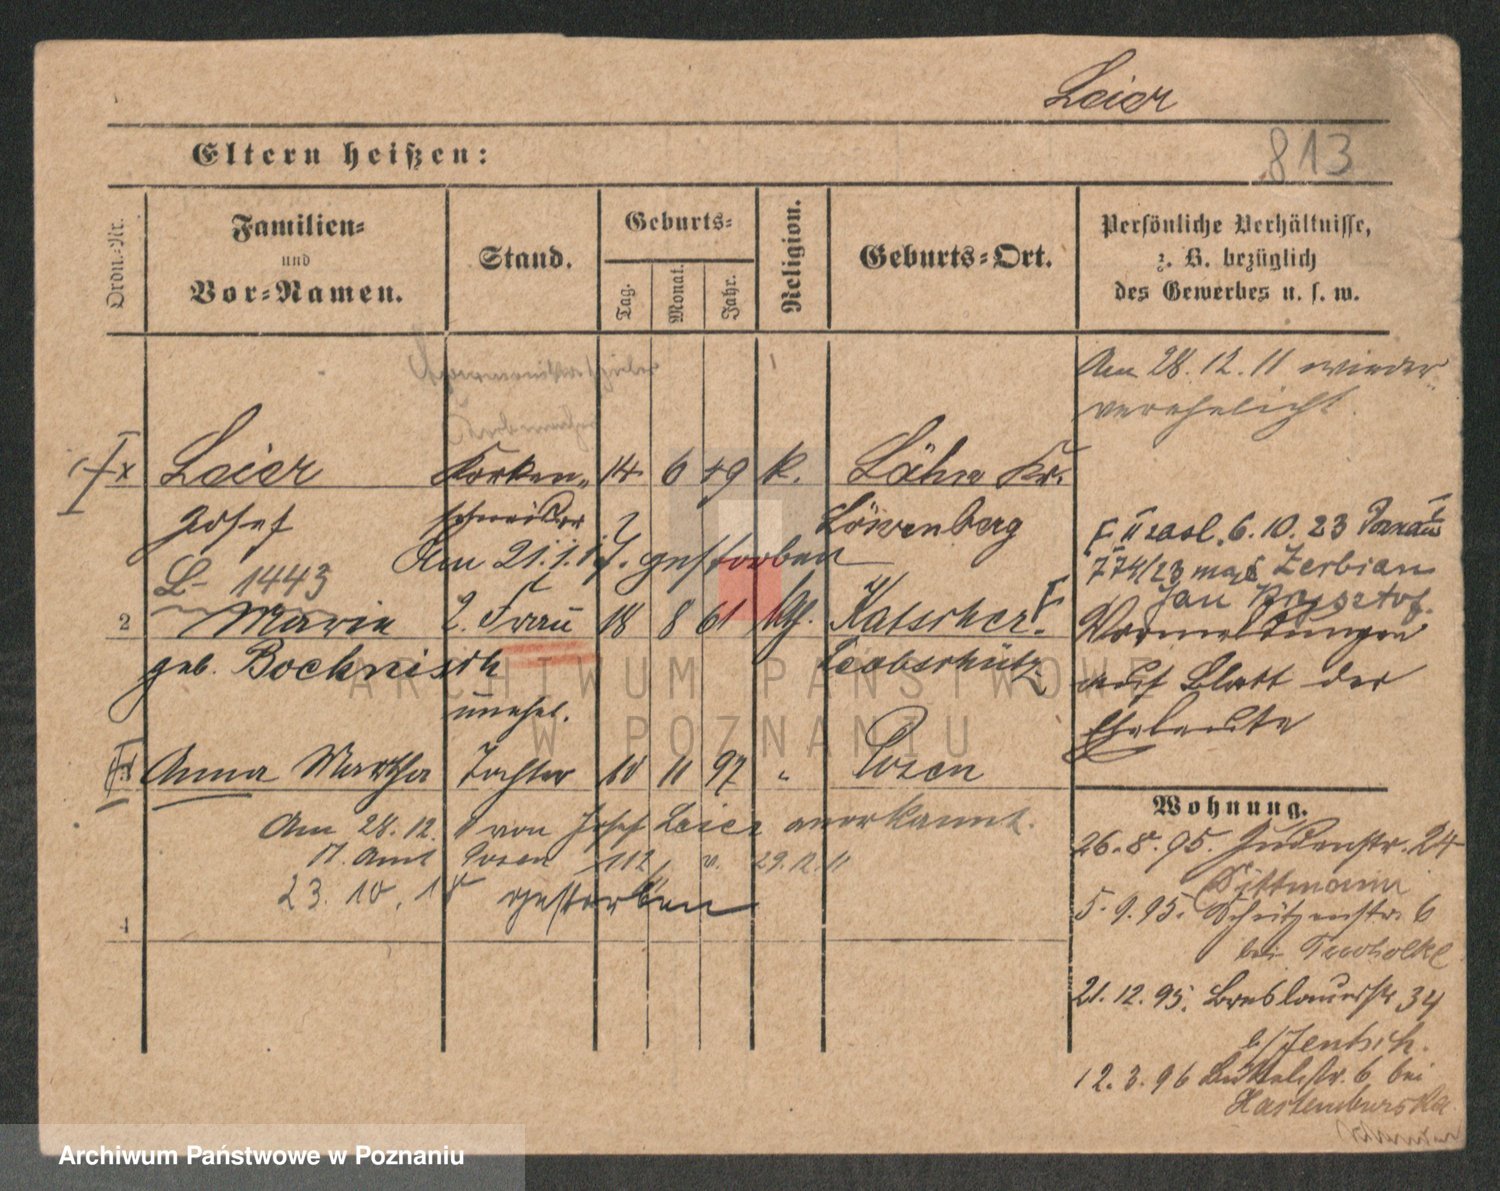 Leier
813
Eltern heißen:
Ordn.-Nr.
Familien-
und
Vor-Namen.
Stand.
Geburts-
Tag.
Monat.
Jahr.
Religion.
Geburts-Ort.
Persönliche Verhältnisse,
z. B. bezüglich
des Gewerbes u. s. w.
Am 28.12.11 wieder
verehelicht.
Leier Korken- 14 6 49 k. Lähn Kr.
Josef schneider Löwenberg
Am 21.1.17. gestorben
L- 1443
2 Marie 2. Frau 18 8 61 Katscher
geb. Bochnisch Leobschütz
unehel.
Anna Martha Tochter 10 11 97 " Posen
Am 28.12. von Josef Leier anerkannt.
Amt Posen 112 v. 29.12.11
23.10.18 gestorben
4
II zasl. 6.10.23
774/23 Zerbian
Jan Krysztof.
Vormeldungen
auf Blatt der
Eheleute
Wohnung.
26.8.95. Judenstr. 24
Dittmann
5.9.95. Schützenstr. 6
bei
21.12.95. Breslauerstr 34
b/ Jentsch.
12.3.96 6 bei
ARCHIWUM PAŃSTWOWE
W POZNANIU
Archiwum Państwowe w Poznaniu